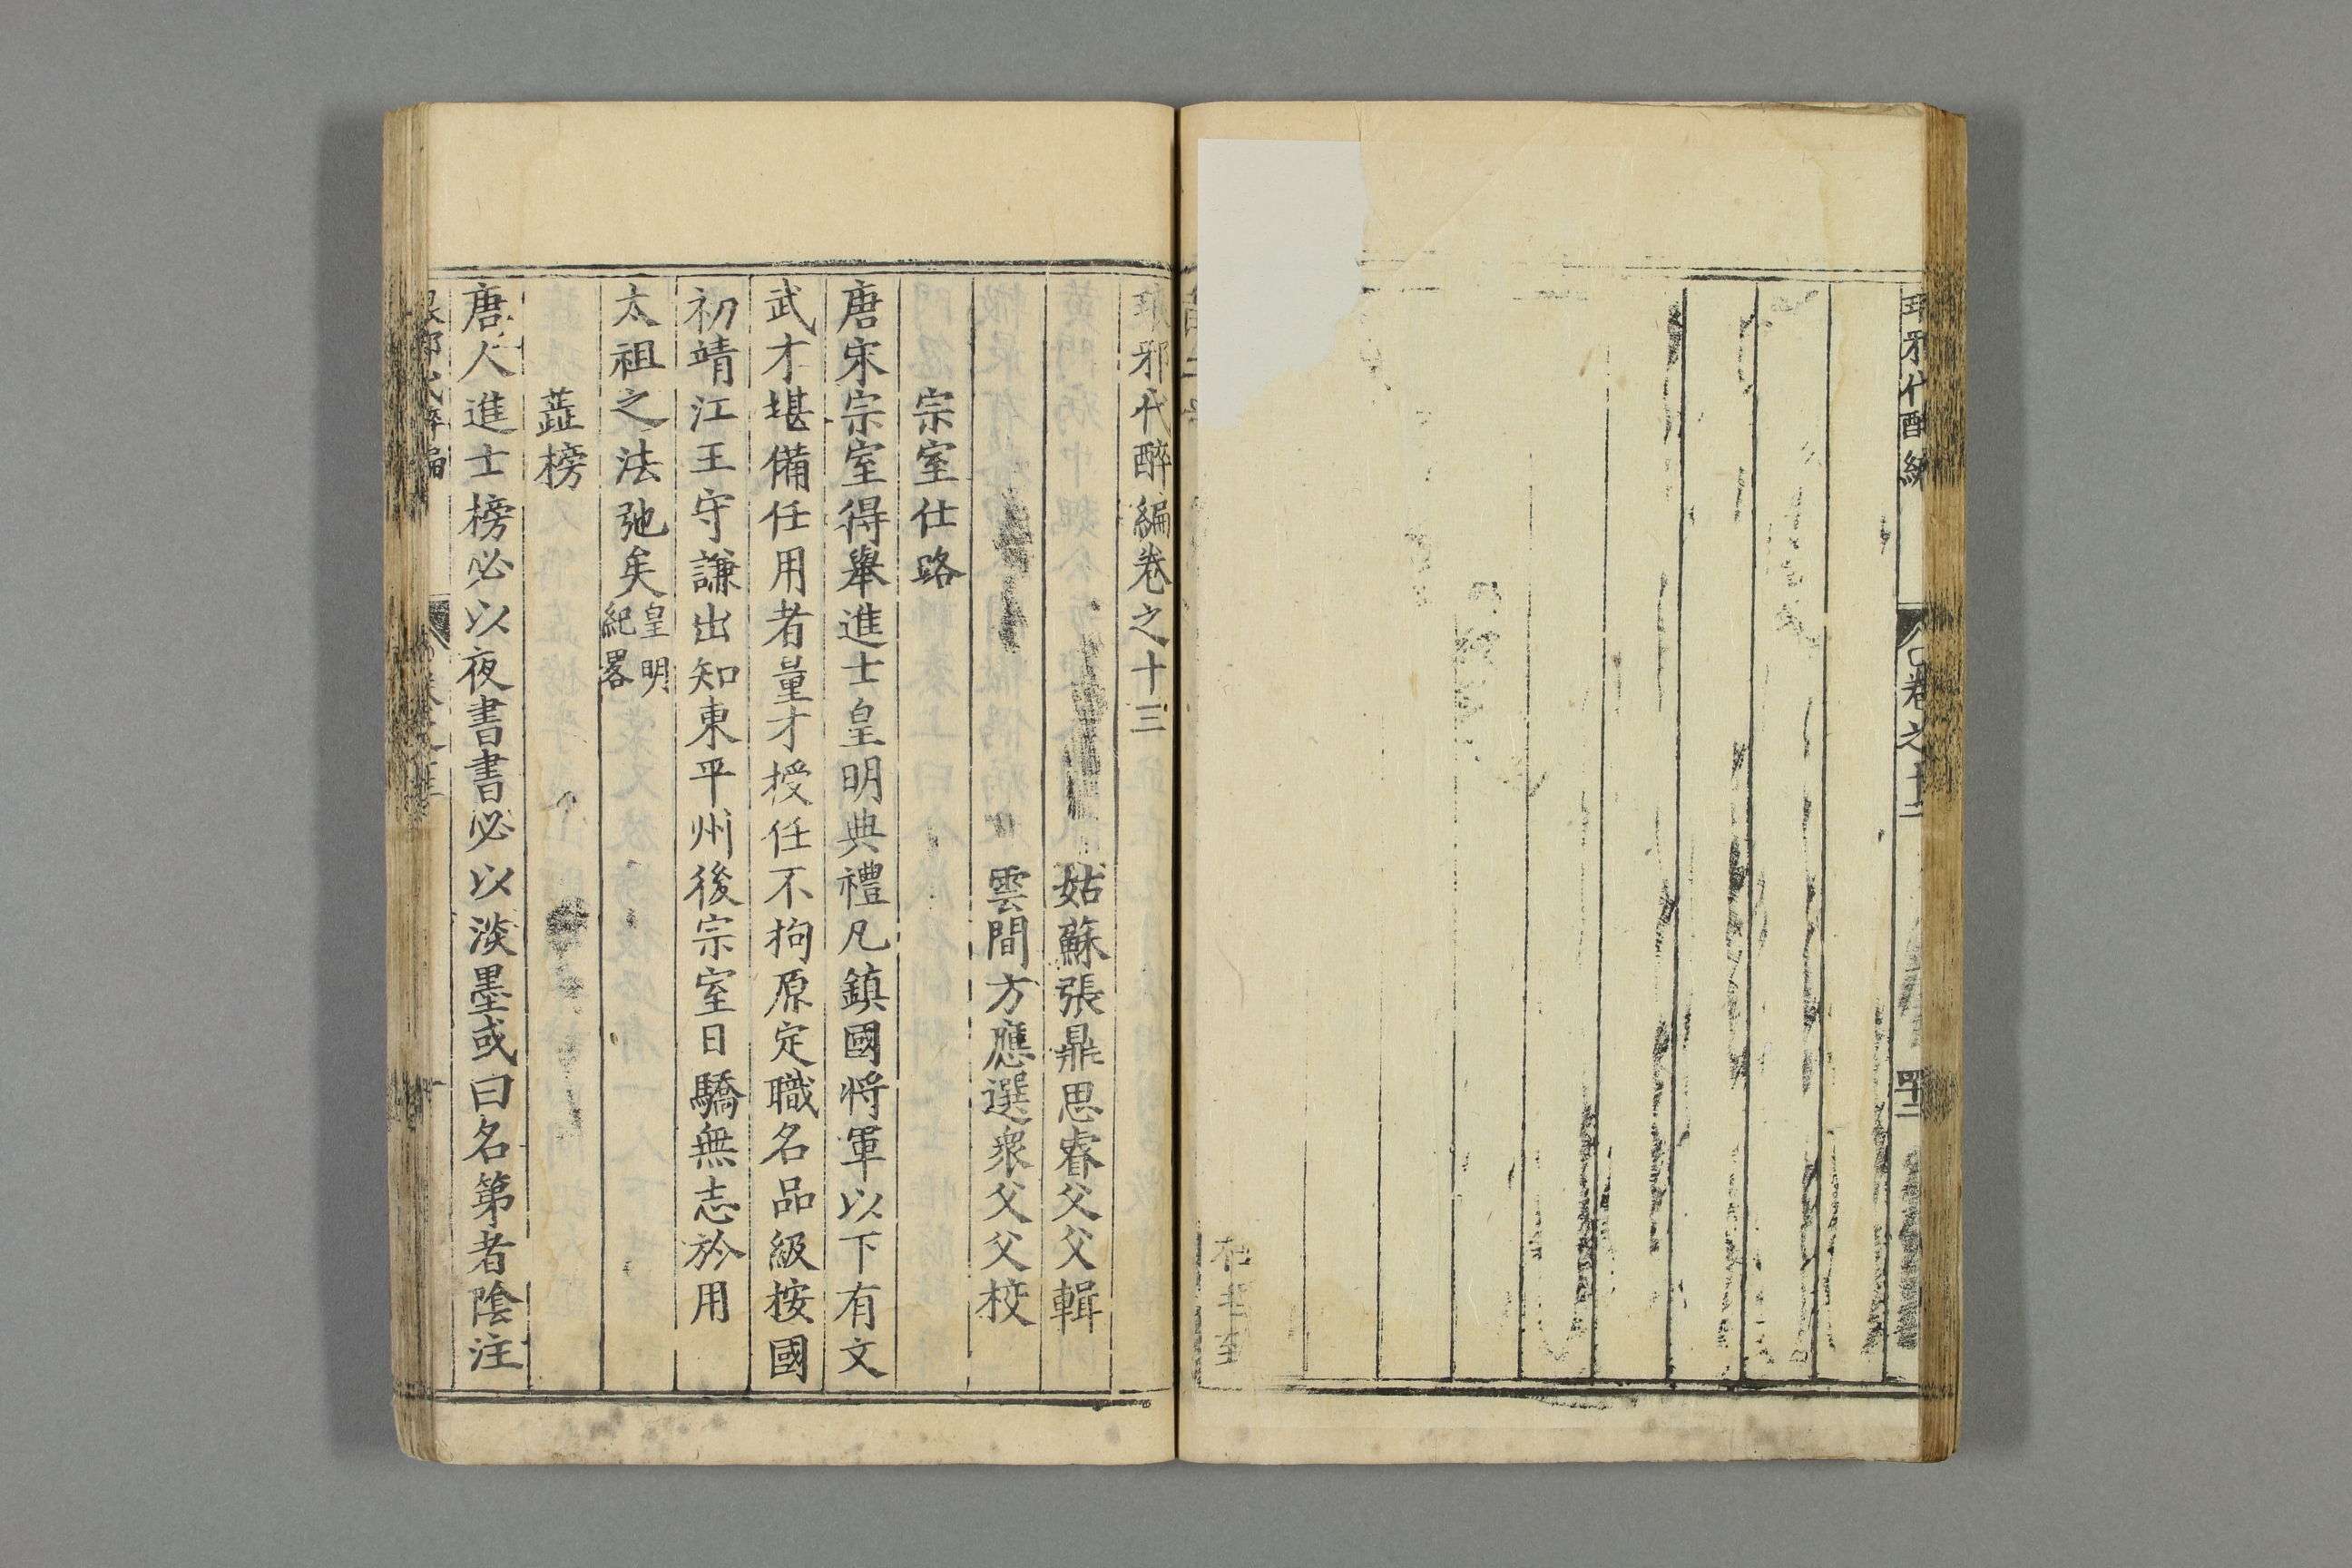 卷之十二
琅邪代醉編卷之十三
姑蘇張鼎思睿父父輯
雲間方應選衆父父校
宗室仕路
唐宋宗室得舉進士皇明典禮凡鎮國將軍以下有文
武才堪備任用者量才授任不拘原定職名品級按國
初靖江王守謙出知東平州後宗室日驕無志於用
太祖之法弛矣皇明紀畧
蕋榜
唐人進士榜必以夜書書必以淡墨或曰名第者陰注